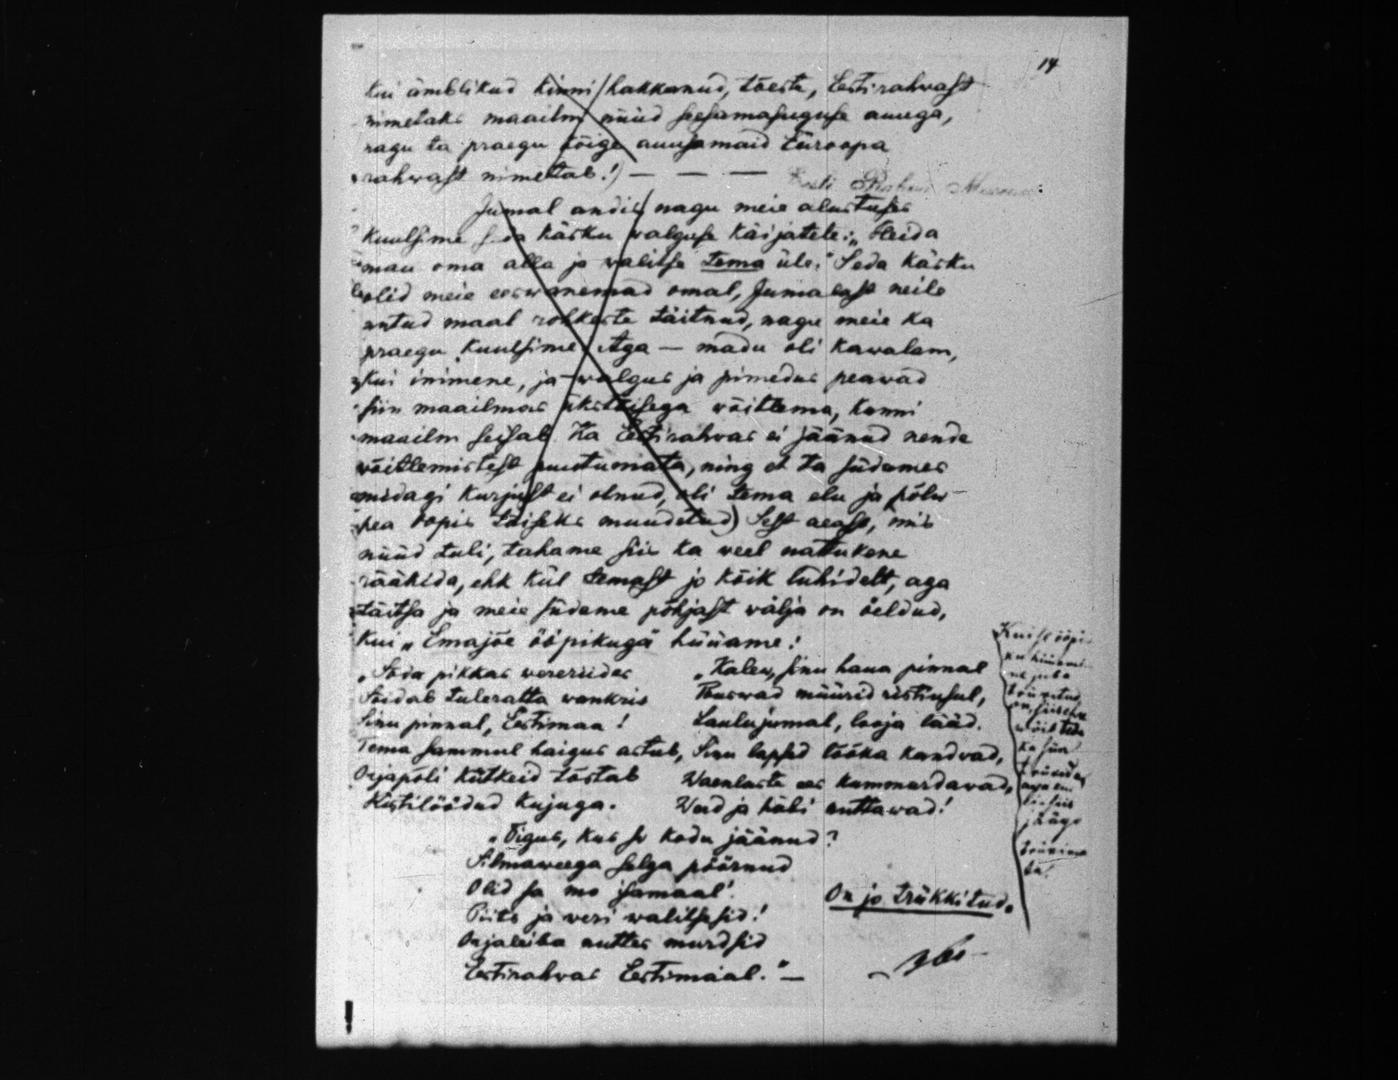 14
kui ämblikud kinni hakkanud, tõeste, Eestirahwast
nimetaks maailm nüüd seesamasuguse auuga,
nagu ta praegu kõige auusamaid Euroopa
rahwast nimetab!) — — —
Eesti Rahva Muuseum
Jumal andis nagu meie alustuses
kuulsime seda käsku walguse käijatele: „Heida
maa oma alla ja walitse tema üle." Seda käsku
olid meie eeswanemad omal, Jumalast neile
antud maal rohkeste täitnud, nagu meie ka
praegu kuulsime. Aga — madu oli kawalam,
kui inimene, ja walgus ja pimedus peawad
siin maailmas üksteisega wõitlema, kunni
maailm seisab. Ka Eestirahwas ei jäänud nende
wõitlemistest puutumata, ning et ta südames
midagi kurjust ei olnud, oli tema elu ja põlw
pea hopis täiseks muudetud) Sest aeast, mis
nüüd tuli, tahame siis ka weel natukene
rääkida, ehk kül temast jo kõik lühidelt, aga
täitsa ja meie südame põhjast wälja on öeldud,
kui „Emajõe ööpikuga" hüüame:
„Sõda pikkas wereriides
Sõidab tuleratta wankris
Sinu pinnal, Eestimaa!
Tema sammul haigus astub,
Orjapõli kütkeid tõstab
Ristilöödud kujuga.
„Kalew, sinu haua pinnal
Tõuswad müürid ristiusul,
Laulujumal, looja lääd.
Sinu lapsed tööka kandwad,
Waenlaste ees kummardawad,
Werd ja häbi nuttawad!
„Õigus, kus su kodu jäänud?
Silmaweega selga pöörnud
Olid sa mo isamaal!
Piits ja weri walitsesid!
Orjaleiba nuttes murdsid
Eestirahwas Eestimaal." —
On jo trükkitud.